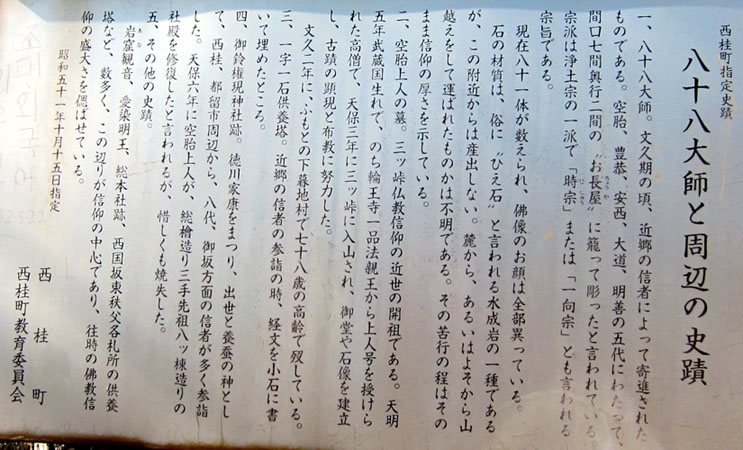 西桂町指定史蹟
八十八大師と周辺の史蹟
一、八十八大師。文久期の頃、近郷の信者によって寄進された
ものである。空胎、豊恭、安西、大道、明善の五代にわたって、
間口七間奥行二間の〝お長屋〟に籠って彫ったと言われている。
宗派は浄土宗の一派で「時宗」または「一向宗」とも言われる
宗旨である。
現在八十一体が数えられ、佛像のお顔は全部異っている。
石の材質は、俗に〝ひえ石〟と言われる水成岩の一種である
が、この附近からは産出しない。麓から、あるいはよそから山
越えをして運ばれたものかは不明である。その苦行の程はその
まま信仰の厚さを示している。
二、空胎上人の墓。三ッ峠仏教信仰の近世の開祖である。天明
五年武蔵国生れで、のち輪王寺一品法親王から上人号を授けら
れた高僧で、天保三年に三ッ峠に入山され、御堂や石像を建立
し、古蹟の顕現と布教に努力した。
文久二年に、ふもとの下暮地村で七十八歳の高齢で歿している。
三、一字一石供養塔。近郷の信者の参詣の時、経文を小石に書
いて埋めたところ。
四、御鈴権現神社跡。徳川家康をまつり、出世と養蚕の神とし
て、西桂、都留市周辺から、八代、御坂方面の信者が多く参詣
した。天保六年に空胎上人が、総檜造り三手先祖八ッ棟造りの
社殿を修復したと言われるが、惜しくも焼失した。
五、その他の史蹟。
岩窟観音、愛染明王、総本社跡、西国坂東秩父各札所の供養
塔など、数多く、この辺りが信仰の中心であり、往時の佛教信
仰の盛大さを偲ばせている。
昭和五十一年十月十五日指定
西桂町
西桂町教育委員会